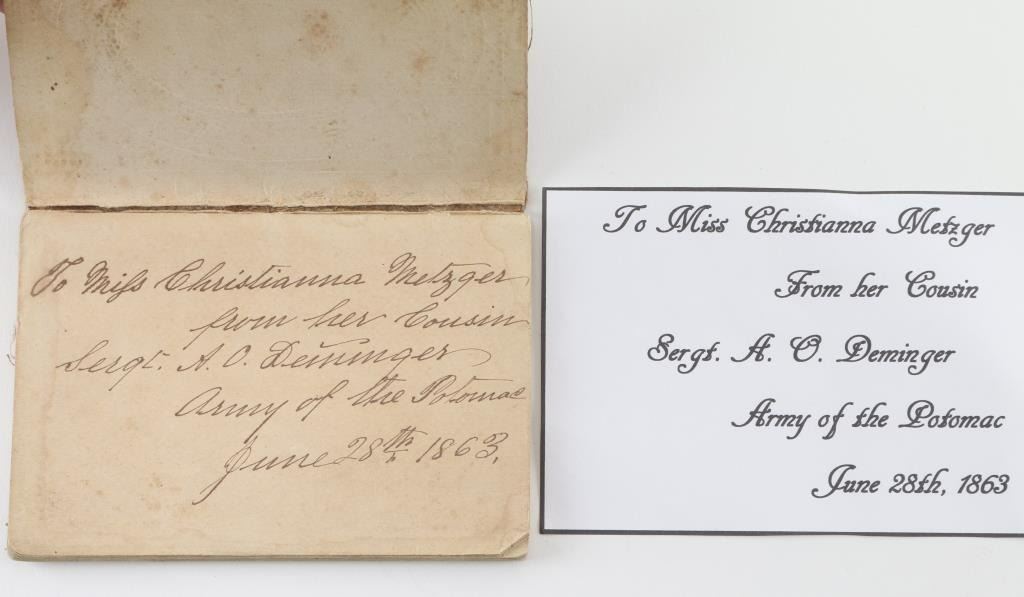 To Miſs Christianna Metzger
from her Cousin
Sergt. A. O. Deminger
Army of the Potomac
June 28th 1863.
To Miss Christianna Metzger
From her Cousin
Sergt. A. O. Deminger
Army of the Potomac
June 28th, 1863